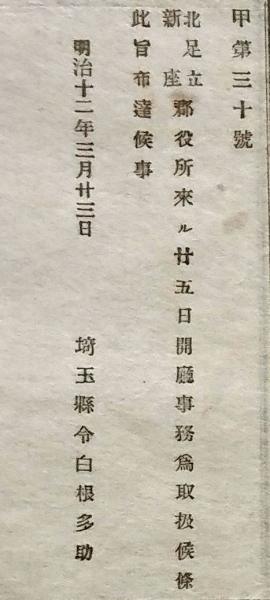 甲第三十號
北足立
新座
郡役所來ル廿五日開廳事務爲取扱候條
此旨布達候事
明治十二年三月廿三日
埼玉縣令白根多助